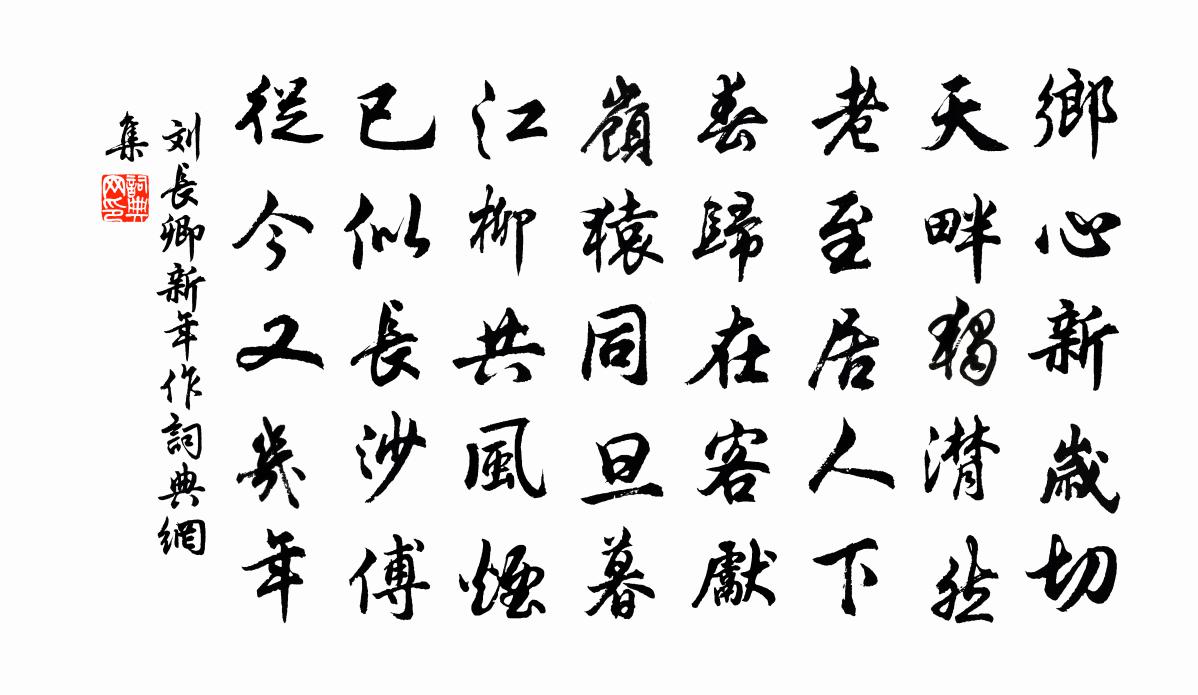 鄉心新歲切
天畔獨潸然
老至居人下
春歸在客獻
嶺猿同旦暮
江柳共風煙
已似長沙傅
從今又幾年
刘長卿新年作詞典網
集
詞典
网印